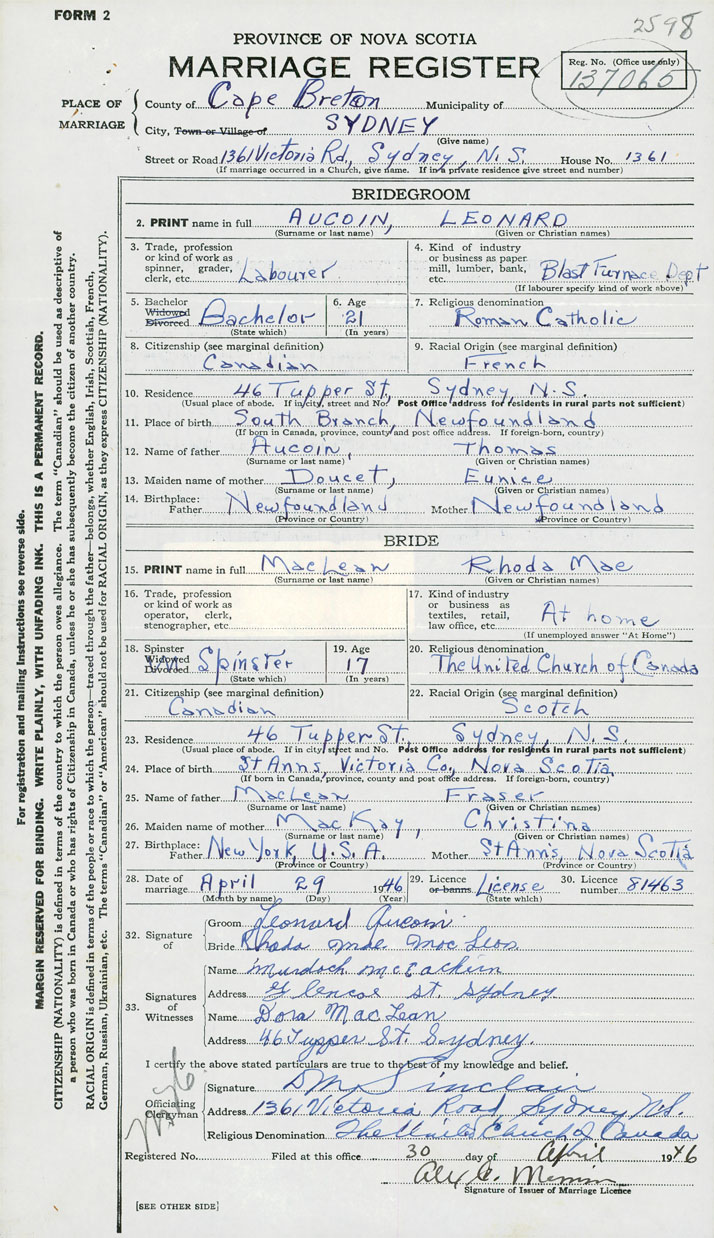 FORM 2
2598
PROVINCE OF NOVA SCOTIA
MARRIAGE REGISTER
Reg. No. (Office use only)
137065
PLACE OF MARRIAGE
County of Cape Breton Municipality of
City, Town or Village of SYDNEY
(Give name)
Street or Road 1361 Victoria Rd., Sydney, N.S. House No. 1361
(If marriage occurred in a Church, give name. If in a private residence give street and number)
BRIDEGROOM
2. PRINT name in full AUCOIN, LEONARD
(Surname or last name) (Given or Christian names)
3. Trade, profession or kind of work as spinner, grader, clerk, etc. Labourer
4. Kind of industry or business as paper mill, lumber, bank, etc. Blast Furnace Dept
(If labourer specify kind of work above)
5. Bachelor Widowed Divorced Bachelor
(State which)
6. Age 21
(In years)
7. Religious denomination
Roman Catholic
8. Citizenship (see marginal definition)
Canadian
9. Racial Origin (see marginal definition)
French
10. Residence 46 Tupper St, Sydney, N.S.
(Usual place of abode. If in city, street and No. Post Office address for residents in rural parts not sufficient)
11. Place of birth South Branch, Newfoundland
(If born in Canada, province, county and post office address. If foreign-born, country)
12. Name of father Aucoin, Thomas
(Surname or last name) (Given or Christian names)
13. Maiden name of mother Doucet, Eunice
(Surname or last name) (Given or Christian names)
14. Birthplace: Father Newfoundland Mother Newfoundland
(Province or Country) (Province or Country)
BRIDE
15. PRINT name in full MacLean Rhoda Mae
(Surname or last name) (Given or Christian names)
16. Trade, profession or kind of work as operator, clerk, stenographer, etc.
17. Kind of industry or business as textiles, retail, law office, etc. At home
(If unemployed answer "At Home")
18. Spinster Widowed Divorced Spinster
(State which)
19. Age 17
(In years)
20. Religious denomination
The United Church of Canada
21. Citizenship (see marginal definition)
Canadian
22. Racial Origin (see marginal definition)
Scotch
23. Residence 46 Tupper St., Sydney, N.S.
(Usual place of abode. If in city street and No. Post Office address for residents in rural parts not sufficient)
24. Place of birth St Anns, Victoria Co., Nova Scotia
(If born in Canada, province, county and post office address. If foreign-born, country)
25. Name of father MacLean Fraser
(Surname or last name) (Given or Christian names)
26. Maiden name of mother MacKay, Christina
(Surname or last name) (Given or Christian names)
27. Birthplace: Father New York, U.S.A. Mother St Anns, Nova Scotia
(Province or Country) (Province or Country)
28. Date of marriage April 29 1946
(Month by name) (Day) (Year)
29. Licence or banns License
(State which)
30. Licence number 81463
32. Signature of
Groom Leonard Aucoin
Bride Rhoda Mae MacLean
33. Signatures of Witnesses
Name Murdoch McEachern
Address Glencoe St. Sydney
Name Dora MacLean
Address 46 Tupper St. Sydney.
I certify the above stated particulars are true to the best of my knowledge and belief.
Officiating Clergyman
Signature D M Sinclair
Address 1361 Victoria Road, Sydney N.S.
Religious Denomination The United Church of Canada
Registered No. Filed at this office 30 day of April 1946
Alex C.
Signature of Issuer of Marriage Licence
[SEE OTHER SIDE]
For registration and mailing instructions see reverse side.
MARGIN RESERVED FOR BINDING. WRITE PLAINLY, WITH UNFADING INK. THIS IS A PERMANENT RECORD.
CITIZENSHIP (NATIONALITY) is defined in terms of the country to which the person owes allegiance. The term "Canadian" should be used as descriptive of
a person who was born in Canada or who has rights of Citizenship in Canada, unless he or she has subsequently become the citizen of another country.
RACIAL ORIGIN is defined in terms of the people or race to which the person—traced through the father—belongs, whether English, Irish, Scottish, French,
German, Russian, Ukrainian, etc. The terms "Canadian" or "American" should not be used for RACIAL ORIGIN, as they express CITIZENSHIP (NATIONALITY).